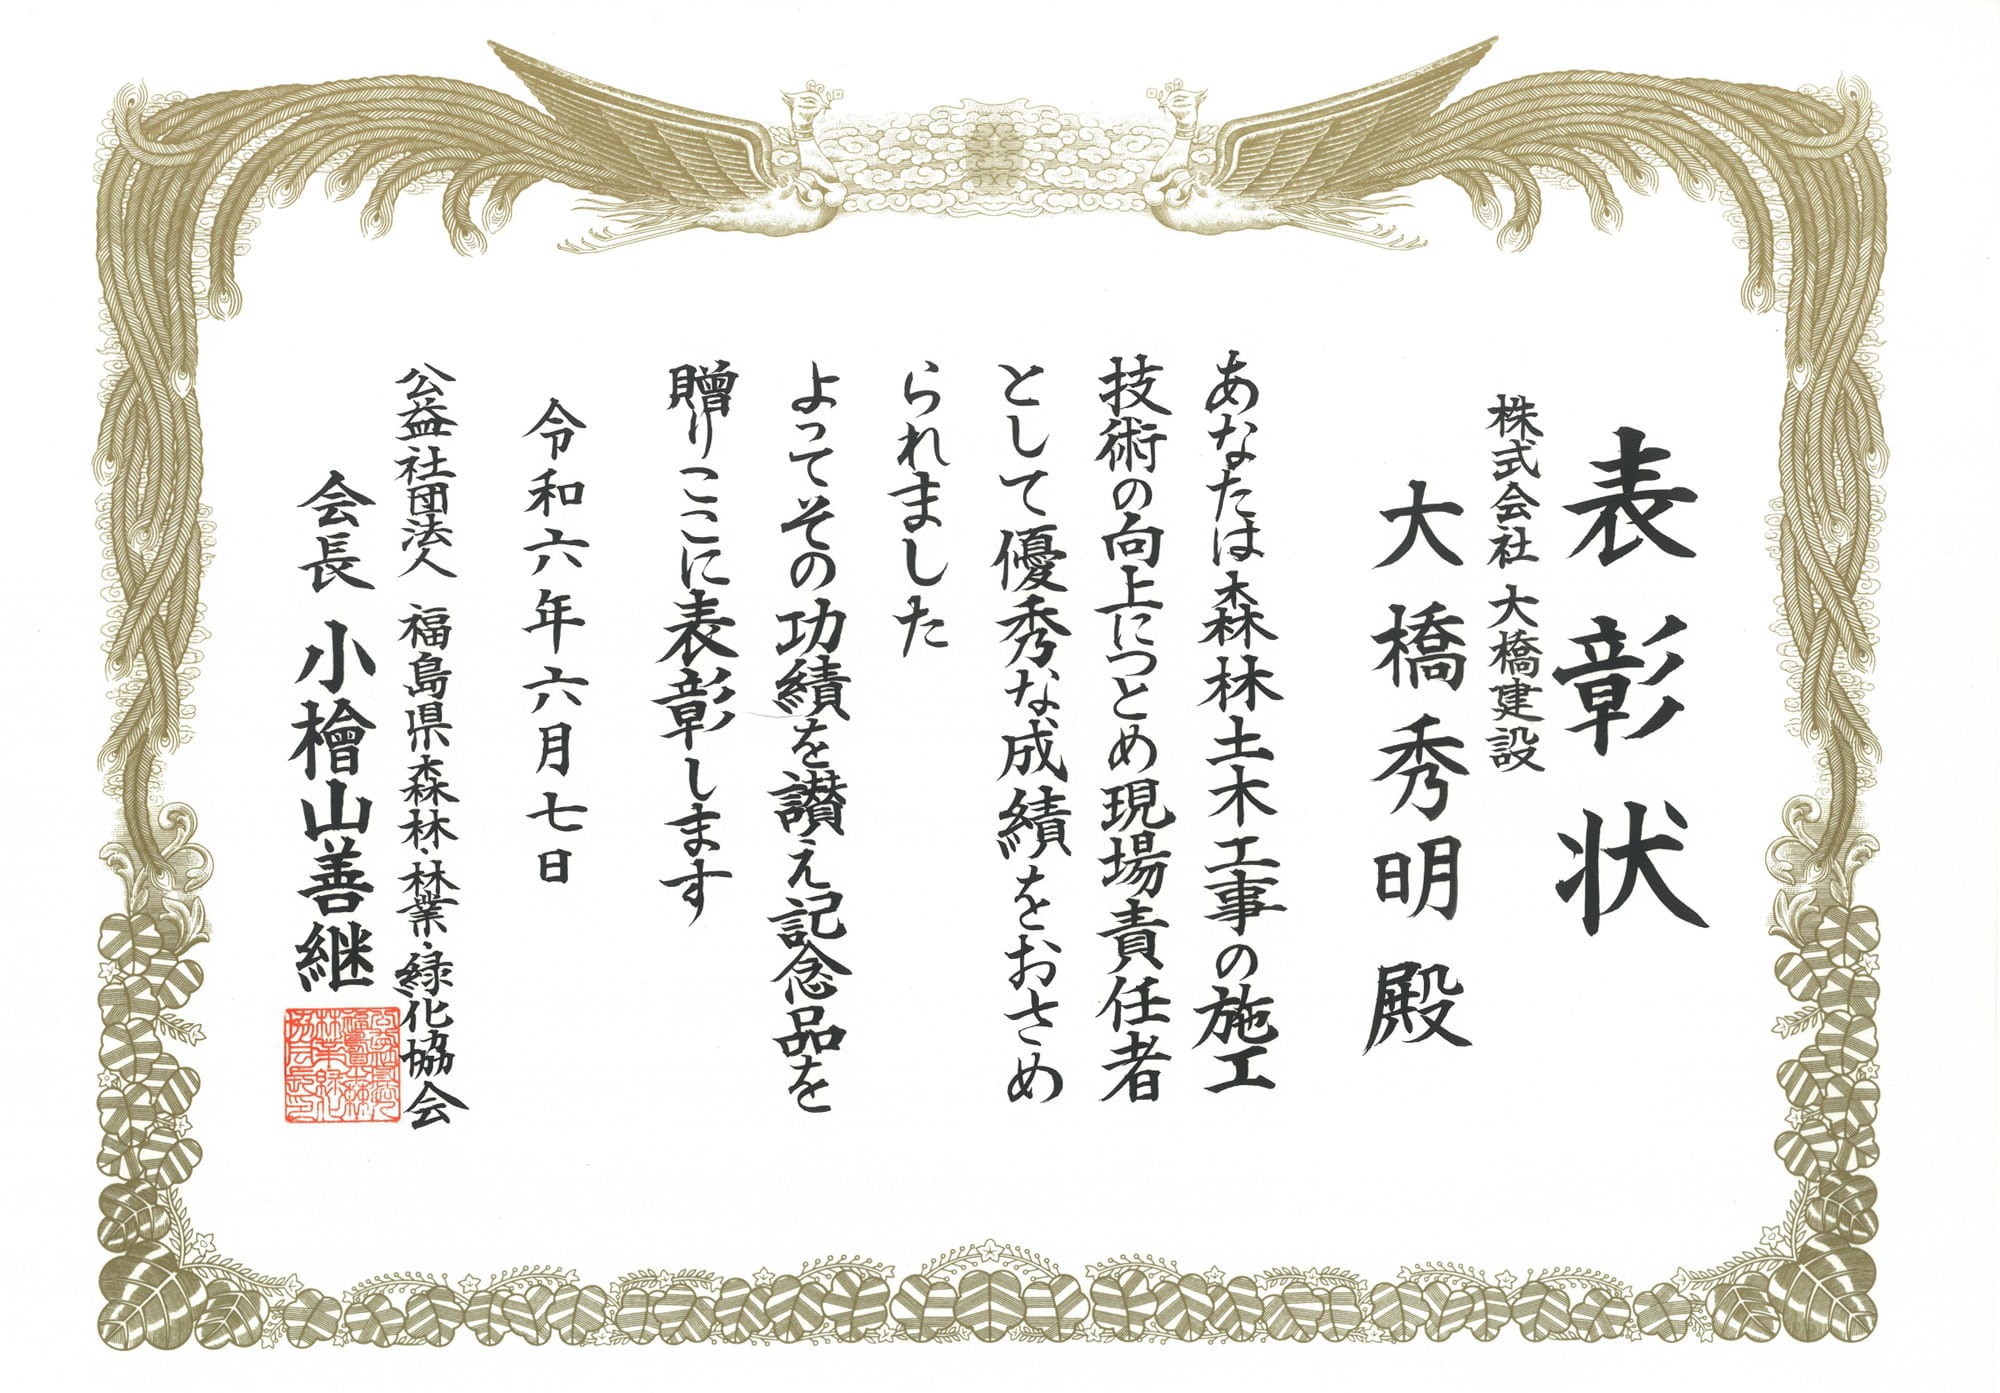 表彰状
株式会社 大橋建設
大橋秀明殿
あなたは森林土木工事の施工
技術の向上につとめ現場責任者
として優秀な成績をおさめ
られました
よってその功績を讃え記念品を
贈りここに表彰します
令和六年六月七日
公益社団法人 福島県森林・林業・緑化協会
会長 小檜山善継